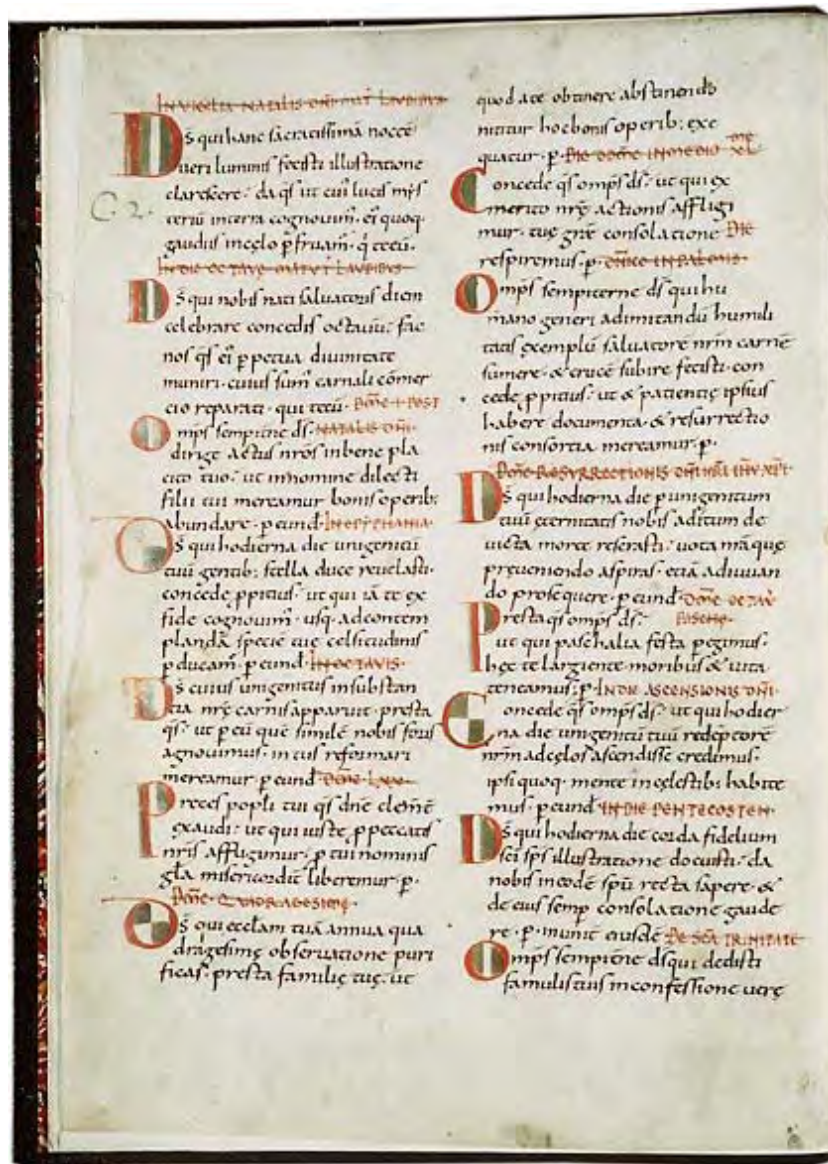 IN VIGILIA NATALIS DNI MAT LAUDIBUS
Ds qui hanc sacratissimā noctē
veri luminis fecisti illustratione
clarescere· da qs ut cui' lucis mys
C. 2.
teriū in terra cognovim'· ei' quoq·
gaudiis in cęlo pfruam'· q tecū·
IN DIE OCTAVE MATUT LAUDIBUS
Ds qui nobis nati salvatoris diem
celebrare concedis octavū· fac
nos qs ei' ppetua divinitate
muniri· cuius sum' carnali cōmer
cio reparati· qui tecū· DOMC I POST
Omps sempitne ds· NATALIS DNI·
dirige actus nros in bene pla
cito tuo· ut in nomine dilecti
filii tui mereamur bonis operib;
abundare· p eund· IN EPYPHANIA·
Ds qui hodierna die unigenitū
tuū gentib; stella duce revelasti·
concede ppitius· ut qui iā te ex
fide cognovim'· usq· ad contem
plandā speciē tuę celsitudinis
pducam'· p eund· IN OCTAVIS·
Ds cuius unigenitus in substan
tia nrę carnis apparuit· presta
qs· ut p eū quē similē nobis foris
agnovimus· intus reformari
mereamur· p eund· DOMC LXX·
Preces popli tui qs dne clemēt
exaudi· ut qui iuste p peccatis
nris affligimur· p tui nominis
gla misericordit liberemur· p·
DOMC QUADRAGESIME·
Ds qui ecclam tuā annua qua
dragesimę observatione puri
ficas· presta familię tuę· ut
quod a te obtinere abstinendo
nititur hoc bonis operib; exe
quatur· p· DIE DOMC IN MEDIO XL
Concede qs omps ds· ut qui ex
merito nrę actionis affligi
mur· tuę gratię consolatione DIE
respiremus· p· DOMCE IN PALMIS·
Omps sempiterne ds qui hu
mano generi ad imitandū humili
tatis exemplū salvatorē nrm carnē
sumere· & crucē subire fecisti· con
cede ppitius· ut & patientię ipsius
habere documenta· & resurrectio
nis consortia mereamur· p·
DOMC RESURRECTIONIS DNI NRI IHU XPI·
Ds qui hodierna die p unigenitum
tuū ęternitatis nobis aditum de
victa morte reserasti· vota nrā quę
pręveniendo aspiras· etiā adiuvan
do prosequere· p eund· DOMC OCTAV
Presta qs omps ds· PASCHE·
ut qui paschalia festa pegimus·
hęc te largiente· moribus & vita
teneamus· p· IN DIE ASCENSIONIS DNI·
Concede qs omps ds· ut qui hodier
na die unigenitū tuū redēptorē
nrm ad cęlos ascendisse credimus·
ipsi quoq· mente in cęlestib; habite
mus· p eund· IN DIE PENTECOSTEN·
Ds qui hodierna die corda fidelium
sci sps illustratione docuisti· da
nobis in eodē spū recta sapere· &
de eius semp consolatione gaude
re· p· in unit eiusdē DE SCA TRINITATE
Omps sempitne ds qui dedisti
famulis tuis in confessione verę